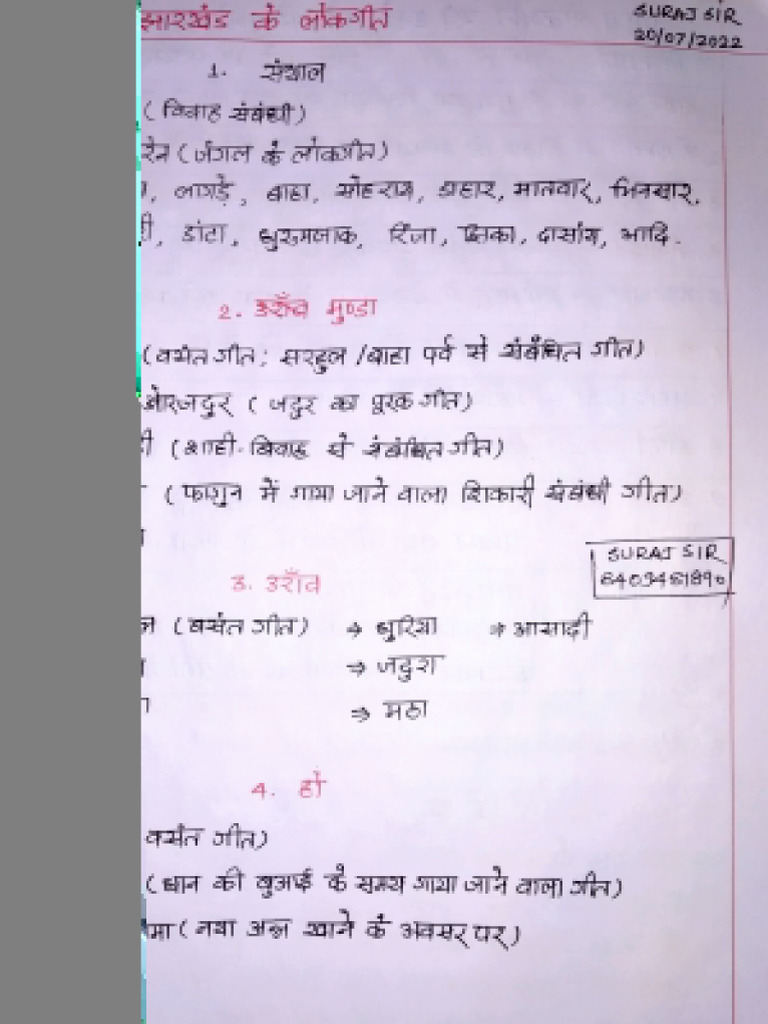 झारखंड के लोकगीत
SURAJ SIR
20/07/2022
1. संथाल
(विवाह संबंधी)
रेन (जंगल के लोकगीत)
, लागड़े, बाहा, सोहराय, डाहार, मातवार, भिनसार,
ी, डांटा, धुरुमजाक, रिंजा, झिका, दासांय, आदि.
2. उराँव मुण्डा
(वसंत गीत; सरहुल/बाहा पर्व से संबंधित गीत)
ओरजदुर (जदुर का पूरक गीत)
दी (शादी-विवाह से संबंधित गीत)
(फागुन में गाया जाने वाला शिकारी संबंधी गीत)
SURAJ SIR
3. उराँव
(वसंत गीत) → धुरिया ⇒ आसाढ़ी
⇒ जदुरा
⇒ मठा
4. हो
वसंत गीत)
(धान की बुआई के समय गाया जाने वाला गीत)
मा (नया अन्न खाने के अवसर पर)